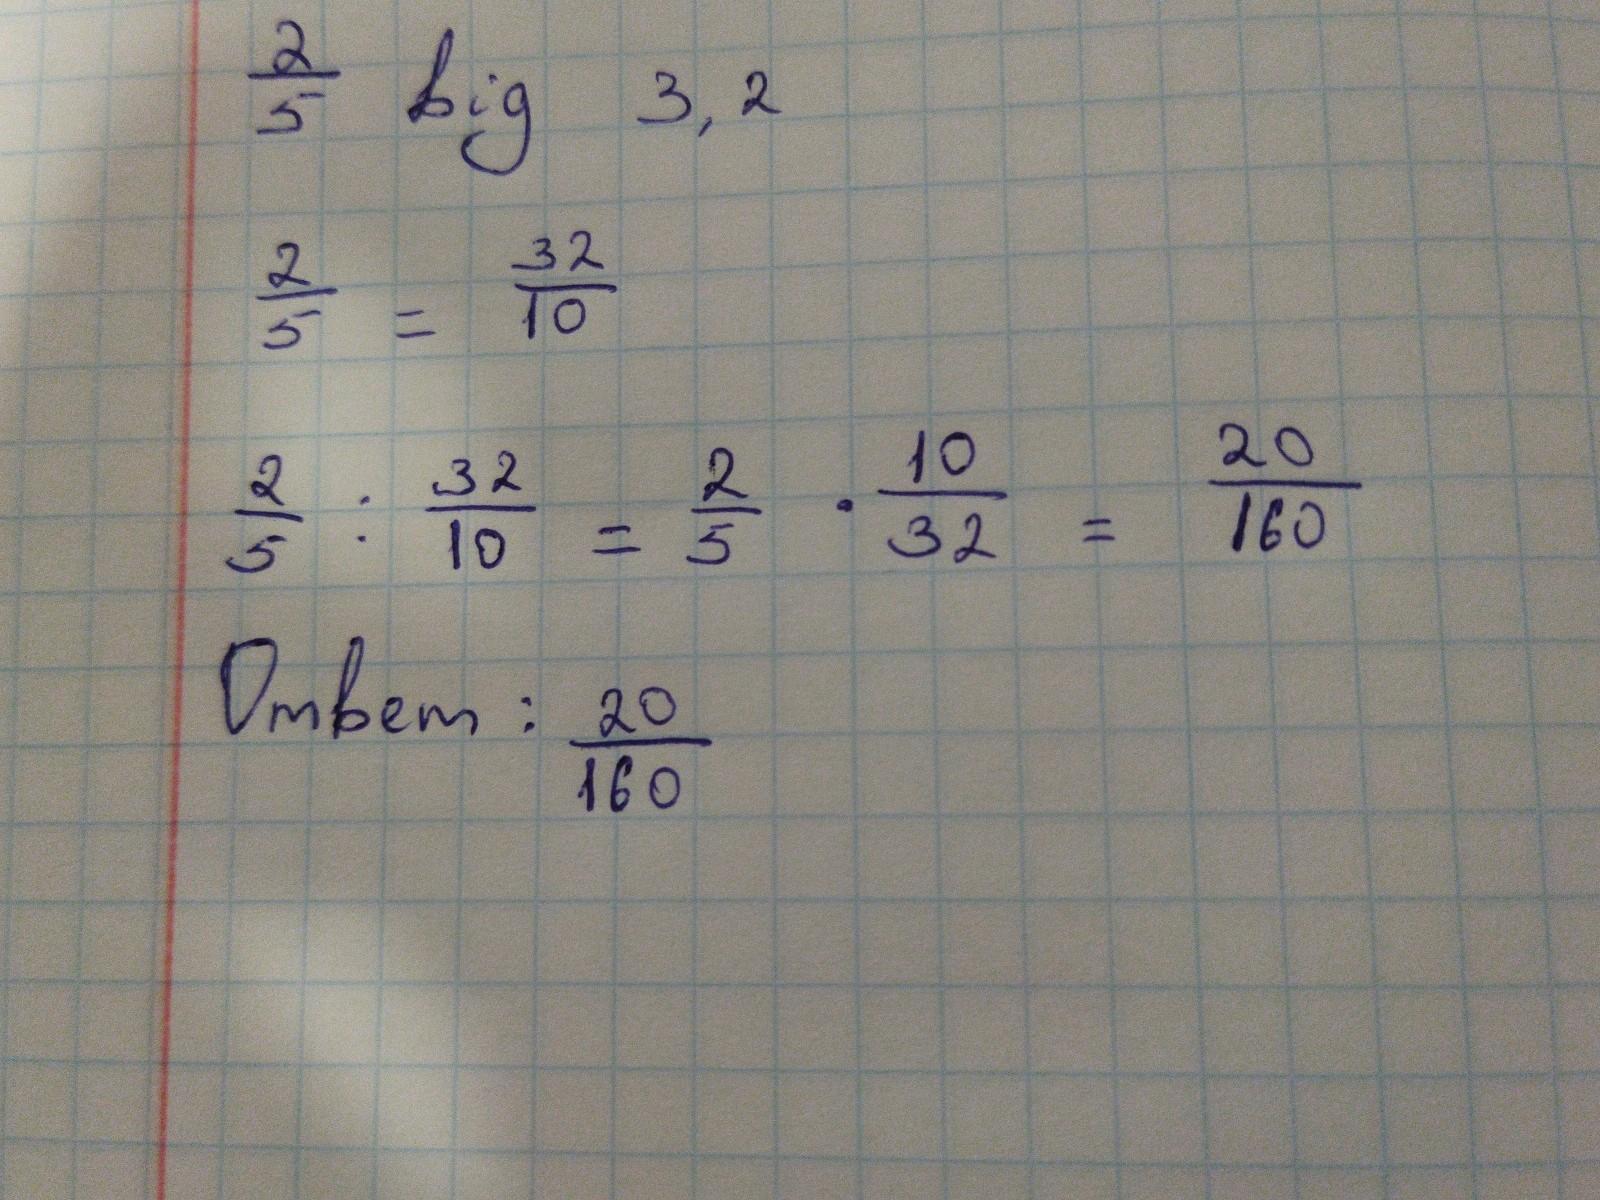 2/5 від 3,2
2/5 = 32/10
2/5 : 32/10 = 2/5 · 10/32 = 20/160
Ответ: 20/160